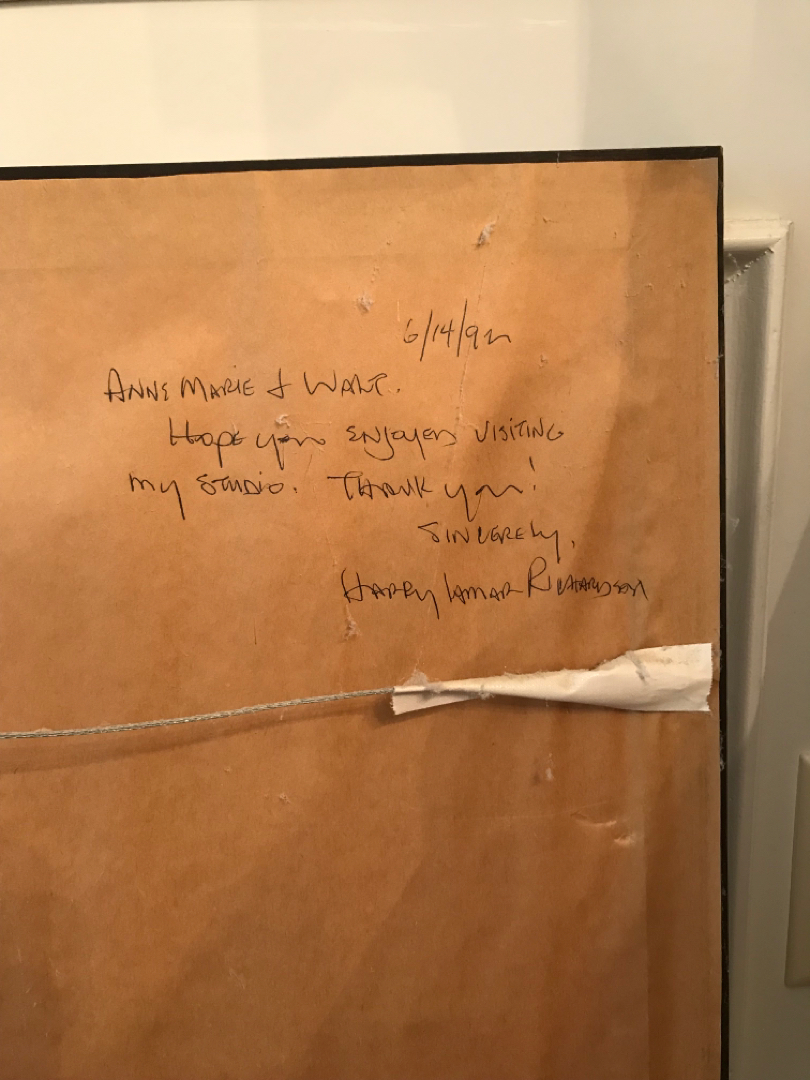 6/14/92
ANNE MARIE & WALT.
Hope you ENJOYED VISITING
my STUDIO. THANK you!
SINCERELY,
HARRY LAMAR RICHARDSON